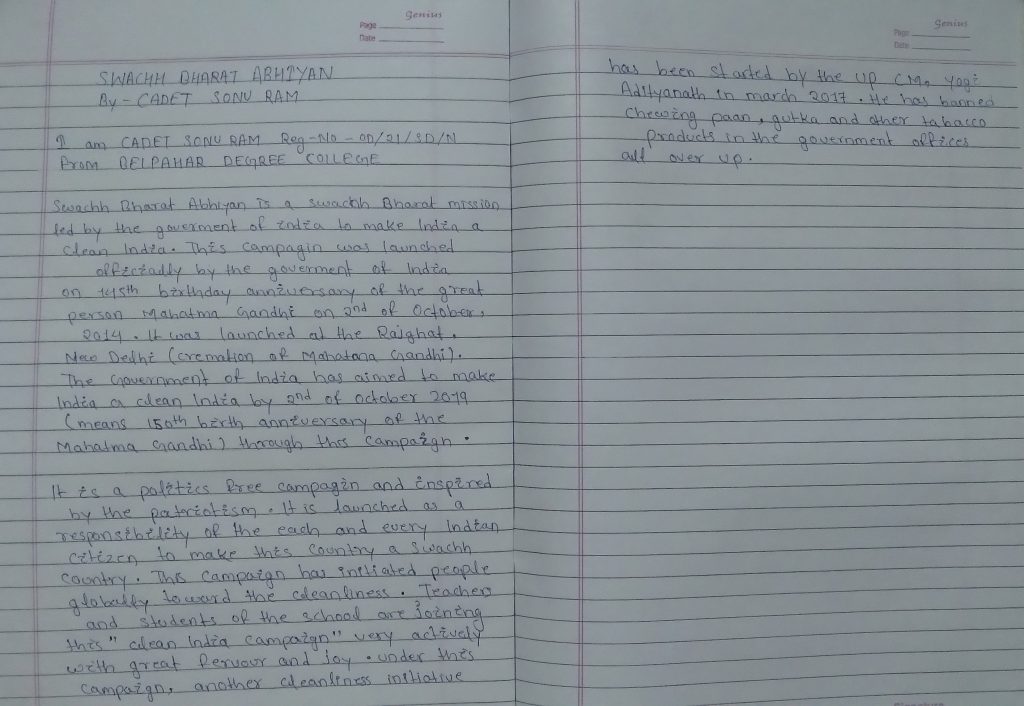 Genius
Page
Date
SWACHH BHARAT ABHIYAN
By - CADET SONU RAM
I am CADET SONU RAM Reg-No - OD/21/SD/N
From BELPAHAR DEGREE COLLEGE
Swachh Bharat Abhiyan is a swachh Bharat mission
led by the goverment of india to make India a
clean India. This campagin was launched
officially by the goverment of India
on 145th birthday anniversary of the great
person Mahatma Gandhi on 2nd of October,
2014. It was launched at the Rajghat,
New Delhi (cremation of Mahatama Gandhi).
The Government of India has aimed to make
India a clean India by 2nd of October 2019
(means 150th birth anniversary of the
Mahatma Gandhi) thorough this campaign.
It is a politics free campagin and inspired
by the patriotism. It is launched as a
responsibility of the each and every Indian
citizen to make this country a Swachh
country. This campaign has initiated people
globally toward the cleanliness. Teachers
and students of the school are joining
this "clean India campaign" very actively
with great fervour and joy. under this
campaign, another cleanliness initiative
Genius
Page
Date
has been started by the UP CM, Yogi
Adityanath in march 2017. He has banned
chewing paan, gutka and other tabacco
products in the government offices
all over up.